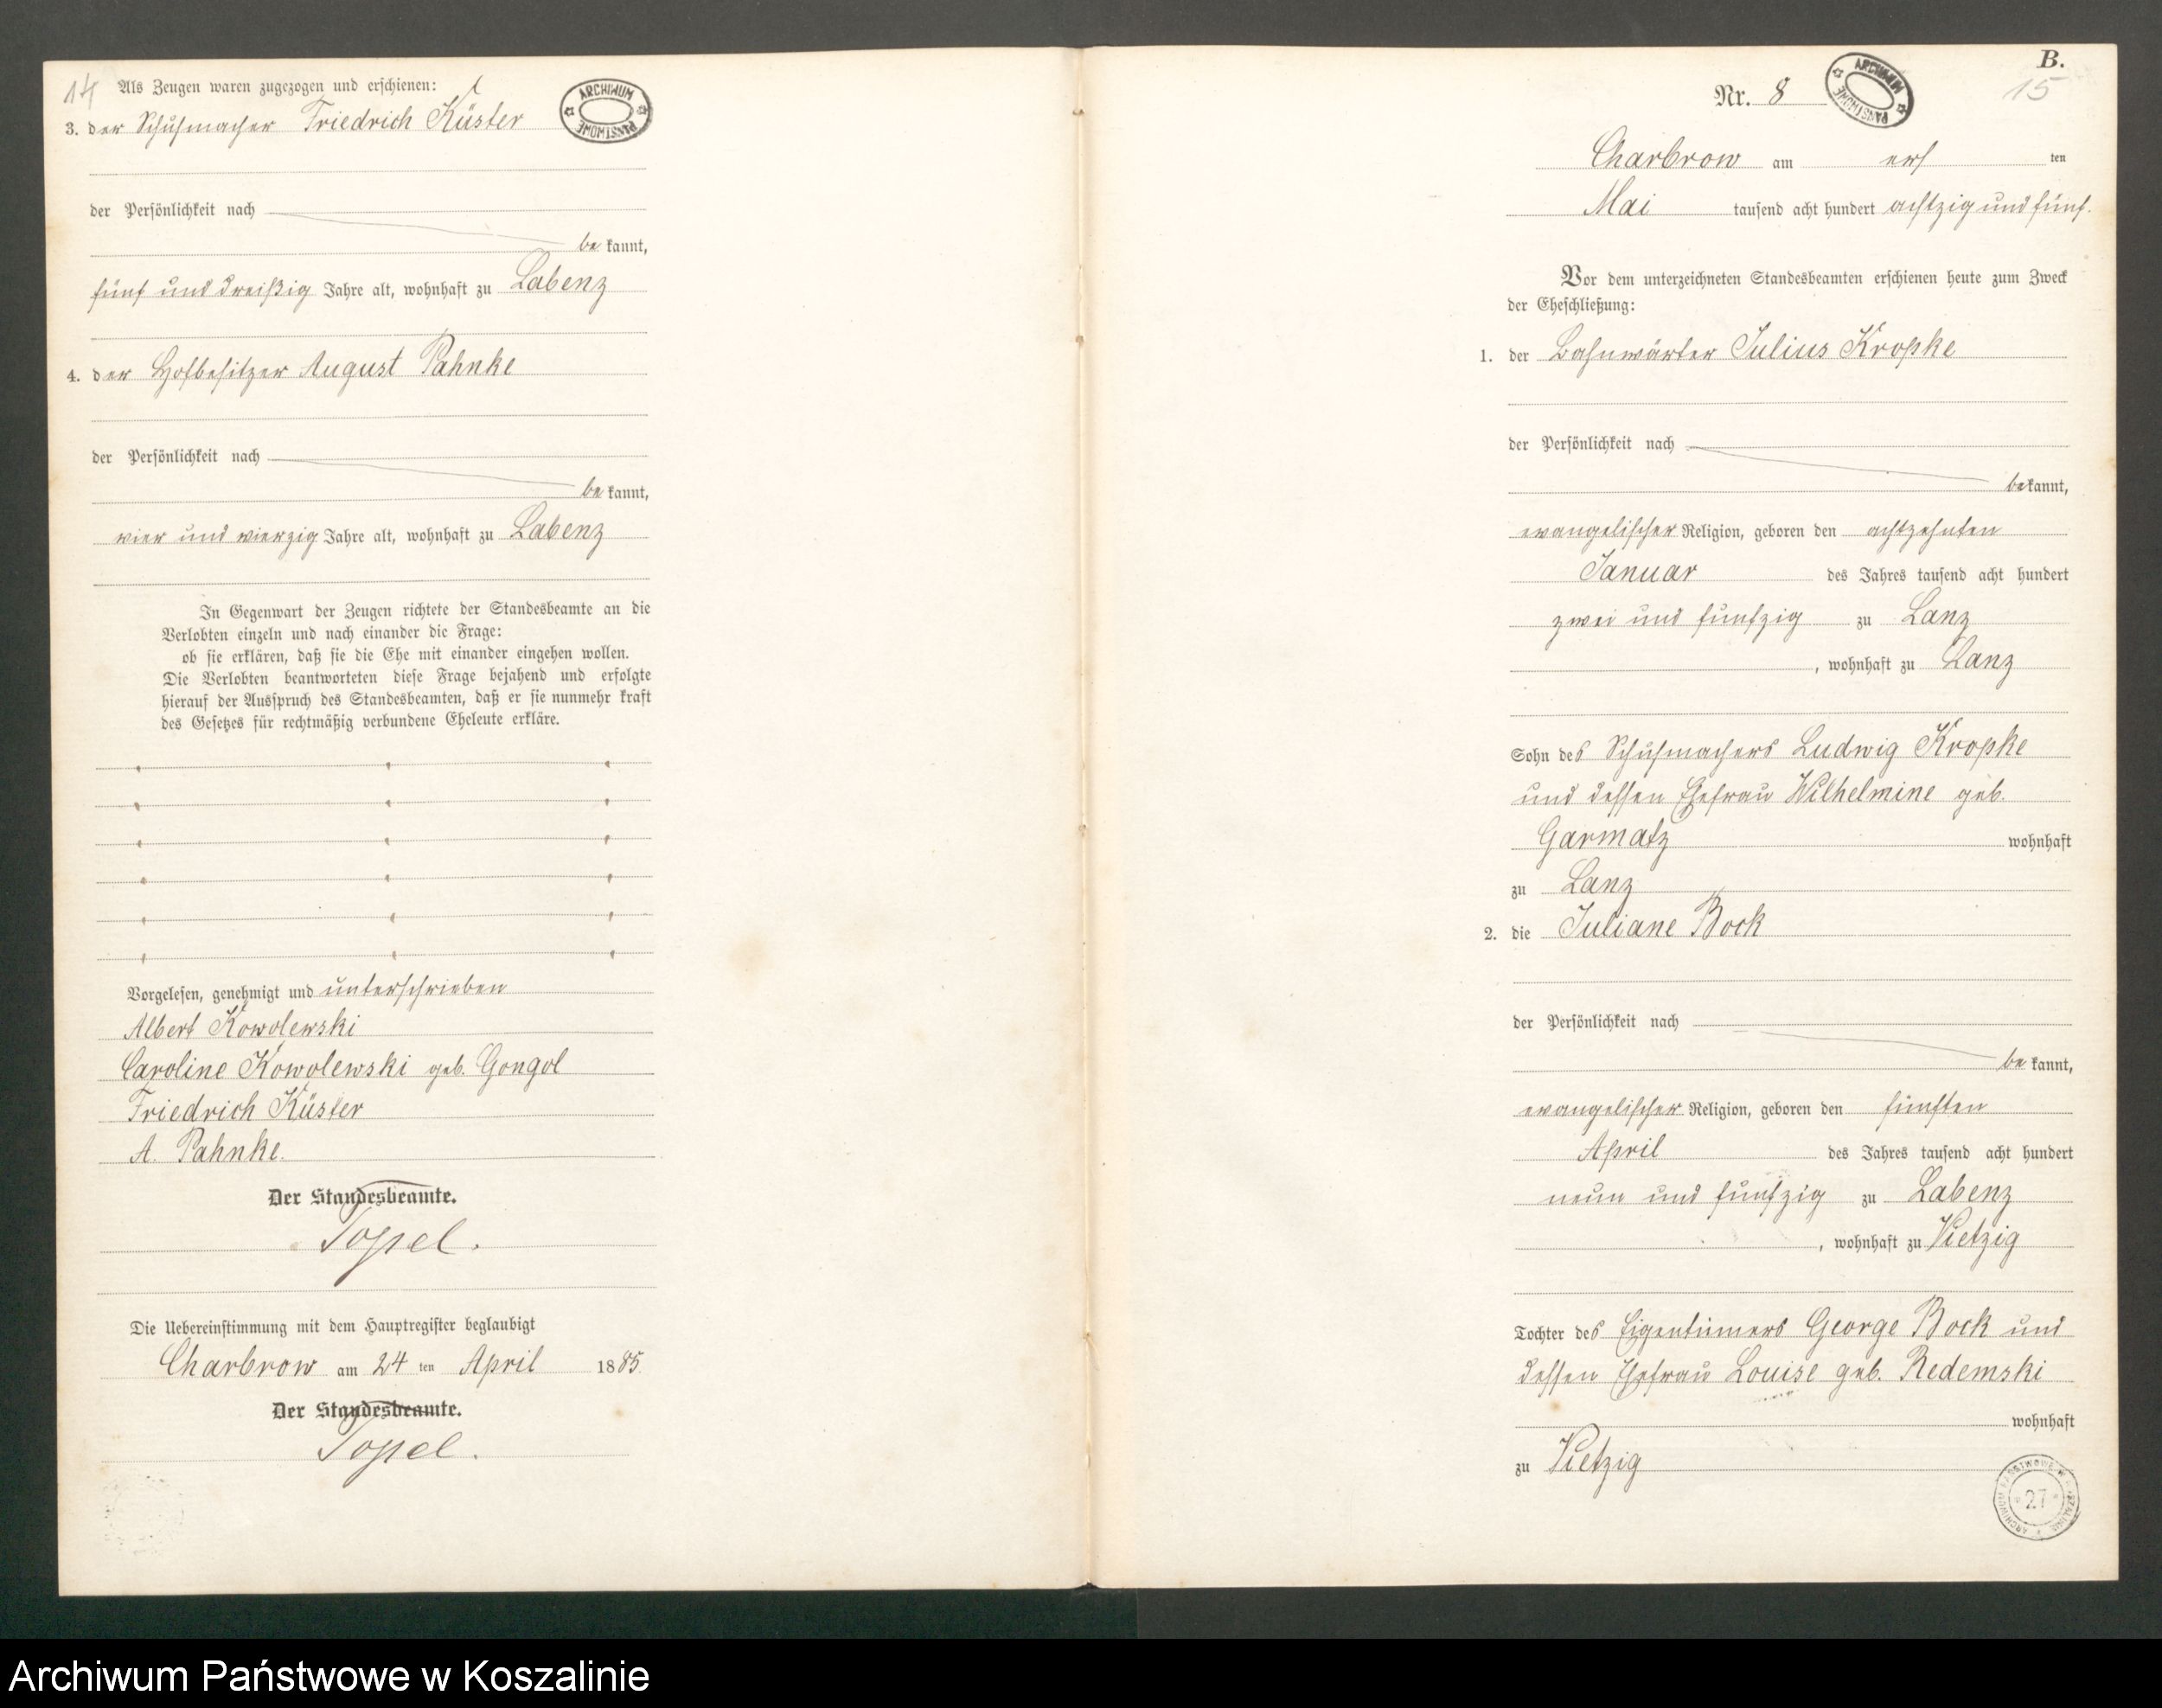 14
Als Zeugen waren zugezogen und erschienen:
ARCHIWUM PAŃSTWOWE
3. der Schuhmacher Friedrich Küster
der Persönlichkeit nach
be kannt,
fünf und dreißig Jahre alt, wohnhaft zu Labenz
4. der Hofbesitzer August Pahnke
der Persönlichkeit nach
be kannt,
vier und vierzig Jahre alt, wohnhaft zu Labenz
In Gegenwart der Zeugen richtete der Standesbeamte an die
Verlobten einzeln und nach einander die Frage:
ob sie erklären, daß sie die Ehe mit einander eingehen wollen.
Die Verlobten beantworteten diese Frage bejahend und erfolgte
hierauf der Ausspruch des Standesbeamten, daß er sie nunmehr kraft
des Gesetzes für rechtmäßig verbundene Eheleute erkläre.
Vorgelesen, genehmigt und unterschrieben
Albert Kowolewski
Caroline Kowolewski geb. Gongol
Friedrich Küster
A. Pahnke.
Der Standesbeamte.
Topel.
Die Uebereinstimmung mit dem Hauptregister beglaubigt
Charbrow am 24 ten April 1885.
Der Standesbeamte.
Topel.
B.
15
Nr. 8
ARCHIWUM PAŃSTWOWE
Charbrow am ers ten
Mai tausend acht hundert achtzig und fünf.
Vor dem unterzeichneten Standesbeamten erschienen heute zum Zweck
der Eheschließung:
1. der Bahnwärter Julius Kropke
der Persönlichkeit nach
be kannt,
evangelischer Religion, geboren den achtzehnten
Januar des Jahres tausend acht hundert
zwei und funfzig zu Lanz
, wohnhaft zu Lanz
Sohn des Schuhmachers Ludwig Kropke
und dessen Ehefrau Wilhelmine geb.
Garmatz wohnhaft
zu Lanz
2. die Juliane Bock
der Persönlichkeit nach
be kannt,
evangelischer Religion, geboren den fünften
April des Jahres tausend acht hundert
neun und funfzig zu Labenz
, wohnhaft zu Vietzig
Tochter des Eigentümers George Bock und
dessen Ehefrau Louise geb. Redemski
wohnhaft
zu Vietzig
ARCHIWUM PAŃSTWOWE W KOSZALINIE
27
Archiwum Państwowe w Koszalinie